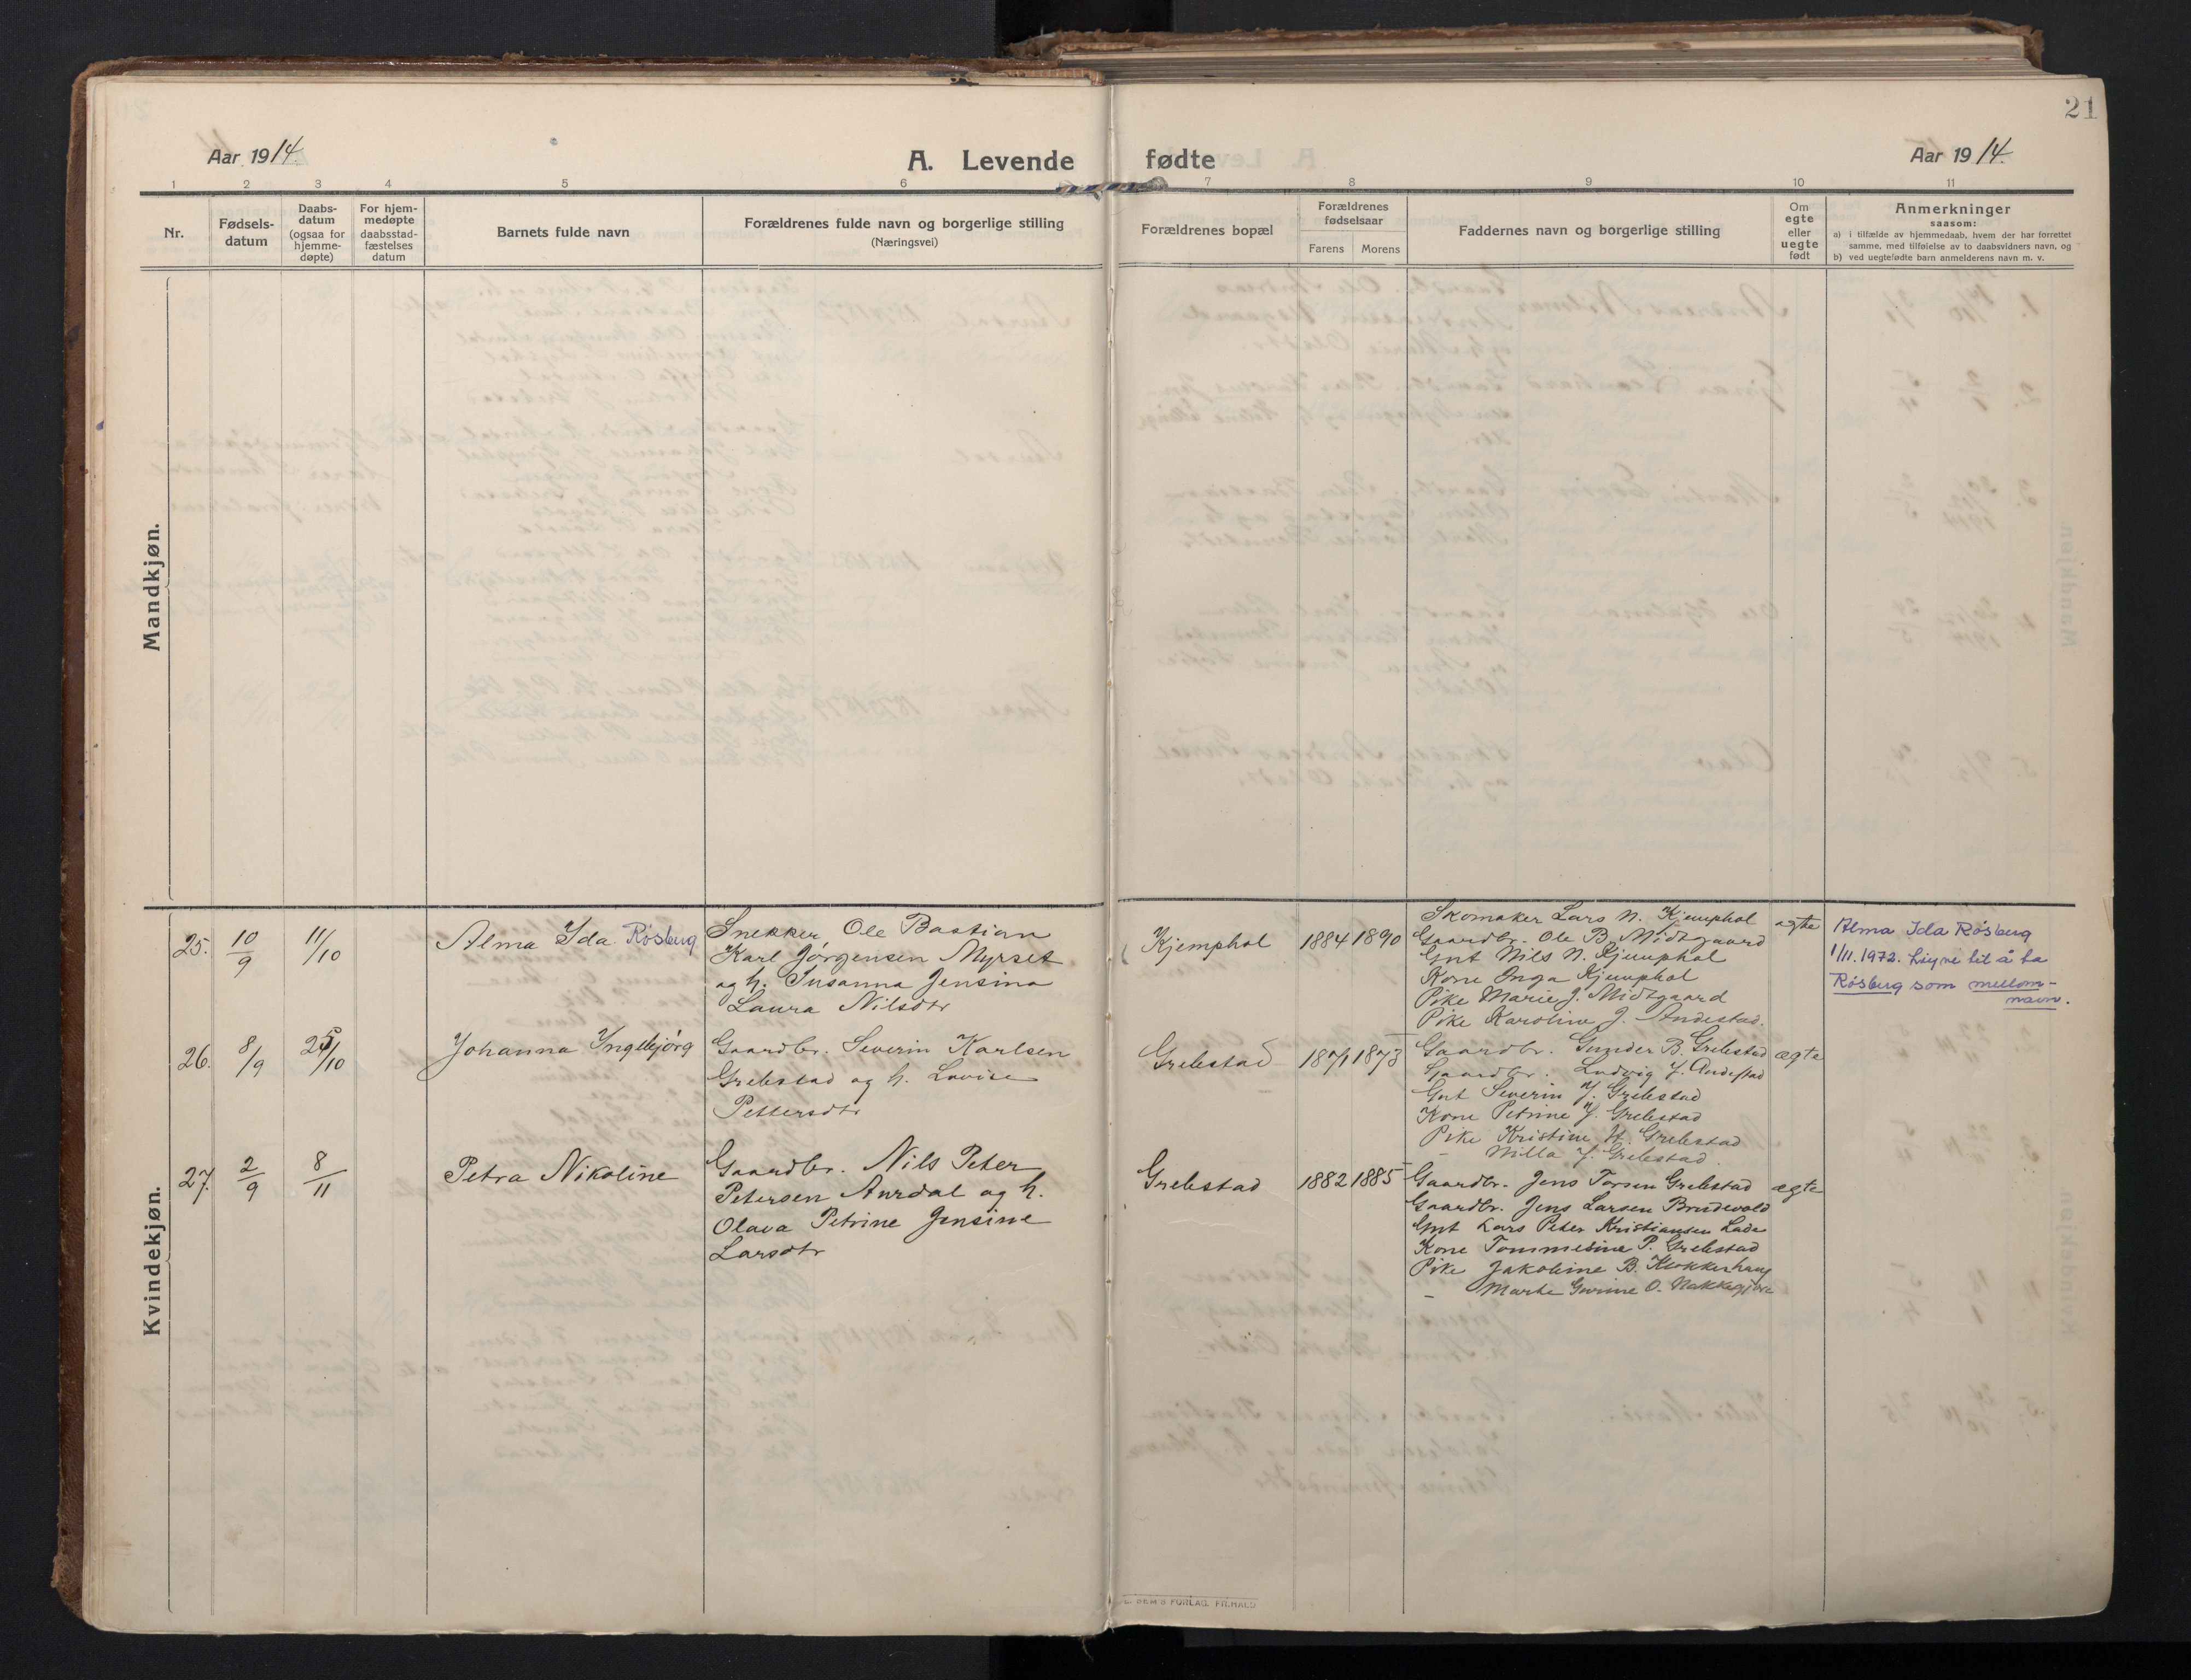 21
Aar 1914.
A. Levende fødte
Aar 1914.
1 2 3 4 5 6 7 8 9 10 11
Nr.
Fødsels-
datum
Daabs-
datum
(ogsaa for
hjemme-
døpte)
For hjem-
medøpte
daabsstad-
fæstelses
datum
Barnets fulde navn
Forældrenes fulde navn og borgerlige stilling
(Næringsvei)
Forældrenes bopæl
Forældrenes
fødselsaar
Farens Morens
Faddernes navn og borgerlige stilling
Om
egte
eller
uegte
født
Anmerkninger
saasom:
a) i tilfælde av hjemmedaab, hvem der har forrettet
samme, med tilføielse av to daabsvidners navn, og
b) ved uegtefødte barn anmelderens navn m. v.
Mandkjøn.
Kvindekjøn.
25. 10/9 11/10
Alma Ida Røsberg
Snekker Ole Bastian
Karl Jørgensen Myrset
og h. Susanna Jensina
Laura Nilsdtr
Kjemphol
1884 1890
Skomaker Lars N. Kjemphol
Gaardbr. Ole B. Midtgaard
Gut Nils N. Kjemphol
Kone Inga Kjemphol
Pike Marie J. Midtgaard
Pike Karoline J. Andestad.
egte
Alma Ida Røsberg
1/11.1972. Løyve til å ta
Røsberg som mellom-
navn.
26. 8/9 25/10
Johanna Ingebjørg
Gaardbr. Severin Karlsen
Grebstad og h. Lovise
Pettersdtr
Grebstad
1871 1873
Gaardbr. Gunder B. Grebstad
Gaardbr. Ludvig J. Andestad
Gut Severin J. Grebstad
Kone Petrine J. Grebstad
Pike Kristine H. Grebstad
- Milla J. Grebstad.
ægte
27. 2/9 8/11
Petra Nikoline
Gaardbr. Nils Peter
Petersen Aurdal og h.
Olava Petrine Jensine
Larsdtr
Grebstad
1882 1885
Gaardbr. Jens Torsen Grebstad
Gaardbr. Jens Larsen Brudevold
Gut Lars Peter Kristiansen Lade
Kone Tommesine P. Grebstad
Pike Jakobine B. Klokkerhaug
- Marte Gurine O. Nakkegjære
ægte
FORLAG, FR.HALD